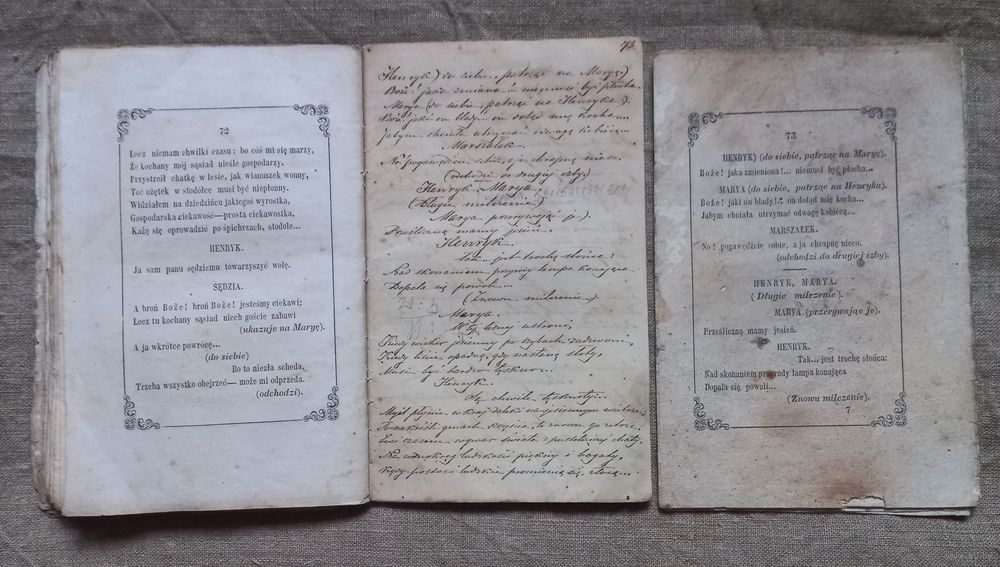 72
Lecz niemam chwilki czasu: bo coś mi się marzy,
Że kochany mój sąsiad nieźle gospodarzy.
Przystroił chatkę w lesie, jak wianuszek wonny,
Toć użętek w stodółce musi być niepłonny.
Widziałem na dziedzińcu jakiegoś wyrostka,
Gospodarska ciekawość—prosta ciekawostka,
Każę się oprowadzić po śpichrzach, stodołe...
HENRYK.
Ja sam panu sędziemu towarzyszyć wolę.
SĘDZIA.
A broń Boże! broń Boże! jesteśmy ciekawi;
Lecz tu kochany sąsiad niech goście zabawi
(ukazuje na Maryę).
A ja wkrótce powrócę...
(do siebie)
Bo to niezła scheda,
Trzeba wszystko obejrzeć— może mi odprzeda.
(odchodzi).
73.
Henryk) do siebie, patrząc na Maryę)
Boże! jaka zmiana! niemusi być płocha.
Marya (do siebie, patrząc na Henryka).
Boże! jaki on blady... on dotąd mię kocha...
Jabym chciała utrzymać odwagę kobiécą...
Marszałek.
No pogawędźcie sobie, a ja chrapnę nieco.
(odchodzi w drugiej izby)
Henryk. Marya.
(Długie milczenie)
Marya przerywając je).
Prześliczną mamy jesień.
Henryk.
Tak... jest trochę słońca:
Nad skonaniem przyrody lampa konająca
Dopala się powoli...
(Znowu milczenie).
Marya.
W tej ustroni,
Kiedy wicher jesienny po szybach zadzwoni,
Kiedy liście opadną, gdy nastaną słoty,
Musi być bardzo tęskno...
Henryk.
Są chwile tęsknoty...
Myśl płynie w kraj daleki na jesiennym wichrze,
ludzkość piękny i bogaty,
Kędy postaci ludzkie promienią się, złocą...
73
HENRYK) (do siebie, patrząc na Maryę).
Boże! jaka zmieniona!... niemusi być płocha...
MARYA (do siebie, patrząc na Henryka).
Boże! jaki on blady!... on dotąd mię kocha...
Jabym chciała utrzymać odwagę kobiécą...
MARSZAŁEK.
No! pogawędźcie sobie, a ja chrapnę nieco.
(odchodzi do drugiej izby).
HENRYK, MARYA.
(Długie milczenie).
MARYA (przerywając je).
Prześliczną mamy jesień.
HENRYK.
Tak... jest trochę słońca:
Nad skonaniem przyrody lampa konająca
Dopala się powoli...
(Znowu milczenie).
7